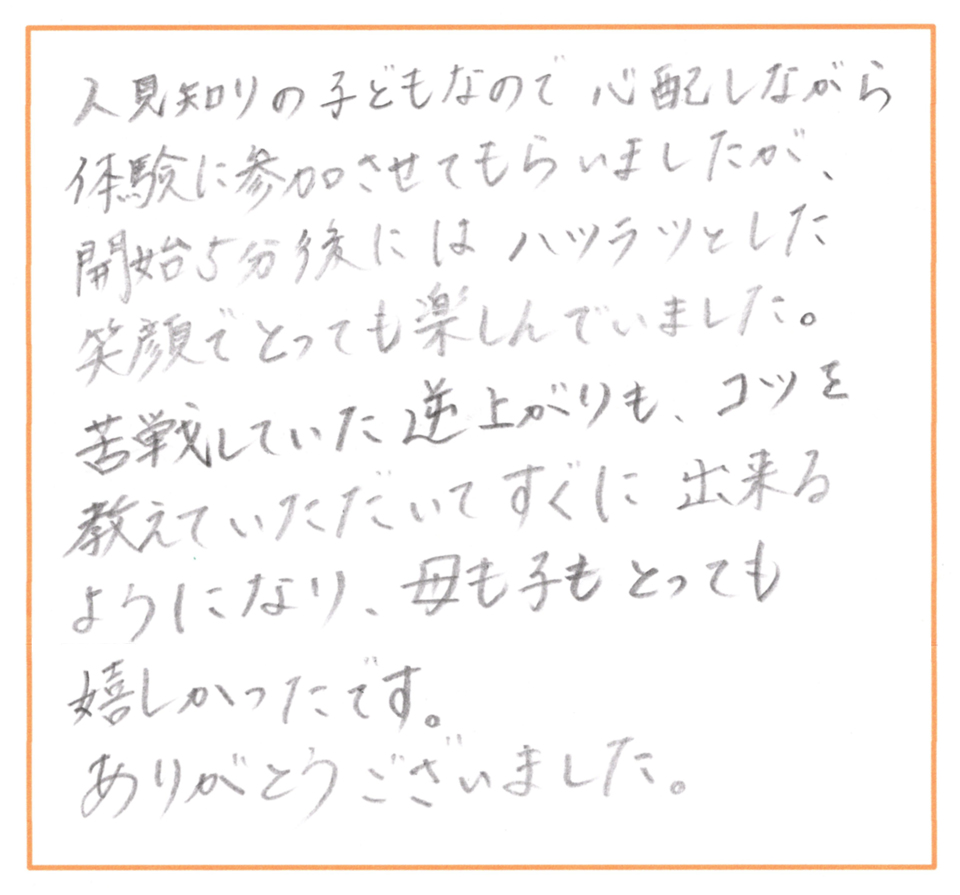 人見知りの子どもなので心配しながら
体験に参加させてもらいましたが、
開始5分後にはハツラツとした
笑顔でとっても楽しんでいました。
苦戦していた逆上がりも、コツを
教えていただいてすぐに出来る
ようになり、母も子もとっても
嬉しかったです。
ありがとうございました。